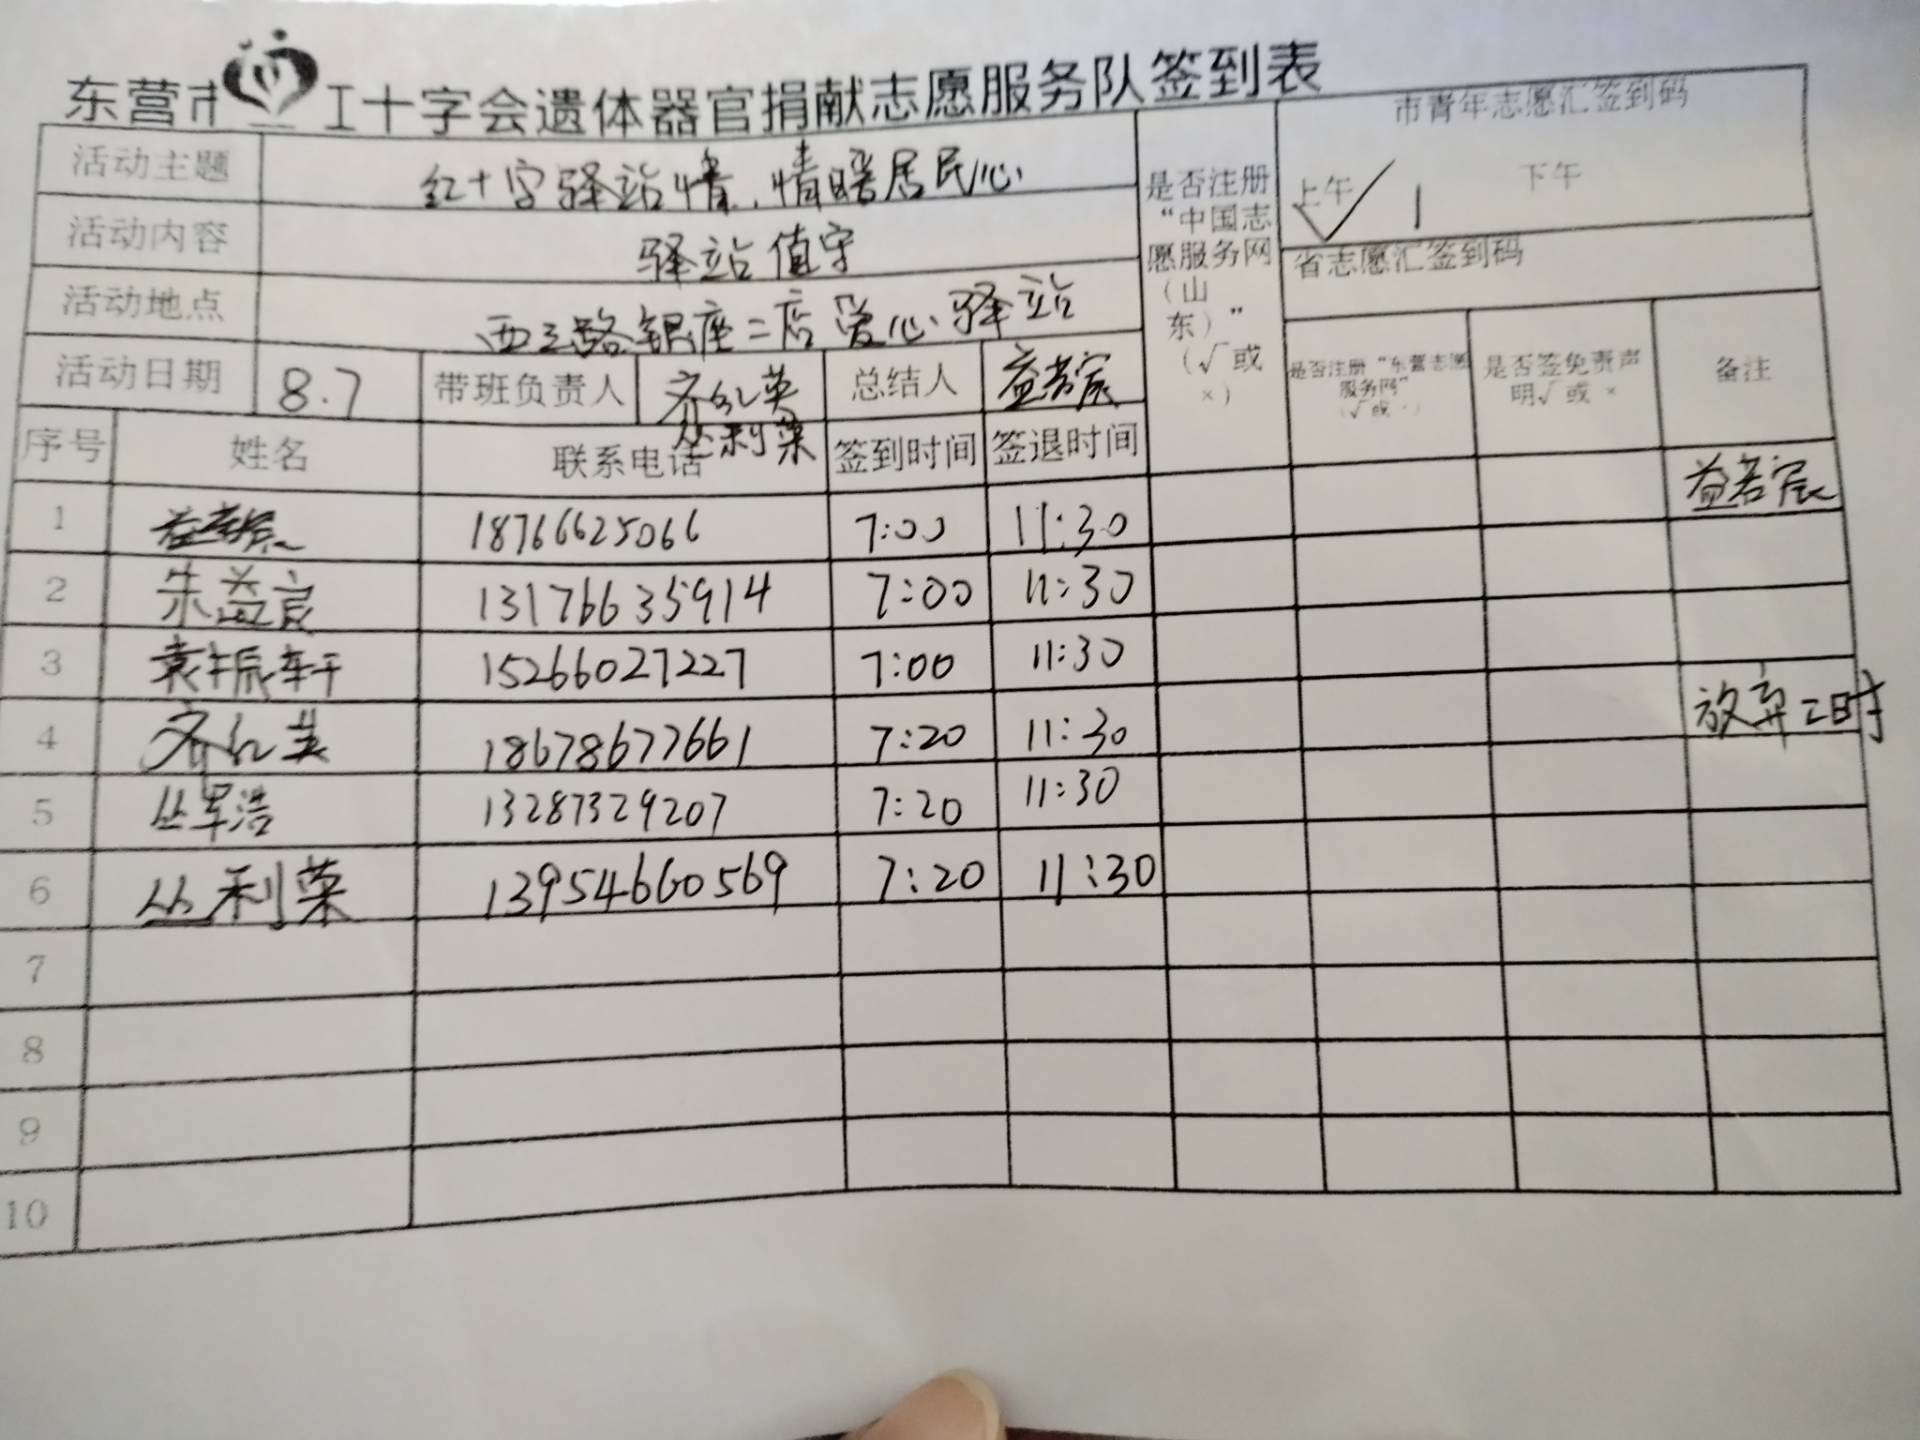 东营市红十字会遗体器官捐献志愿服务队签到表
活动主题 红十字驿站情,情暖居民心
活动内容 驿站值守
活动地点 西三路银座二店爱心驿站
活动日期 8.7 带班负责人 齐红英 丛利荣 总结人 益若宸
是否注册“中国志愿服务网(山东)”(√或×)
市青年志愿汇签到码
上午 √ 1 下午
省志愿汇签到码
是否注册“东营志愿服务网”(√或×) 是否签免责声明√或× 备注
序号 姓名 联系电话 签到时间 签退时间
1 18766625066 7:00 11:30 益若宸
2 朱益宸 13176635914 7:00 11:30
3 袁振轩 15266027227 7:00 11:30
4 齐红英 18678677661 7:20 11:30 放弃2时
5 丛军浩 13287329207 7:20 11:30
6 丛利荣 13954660569 7:20 11:30
7
8
9
10